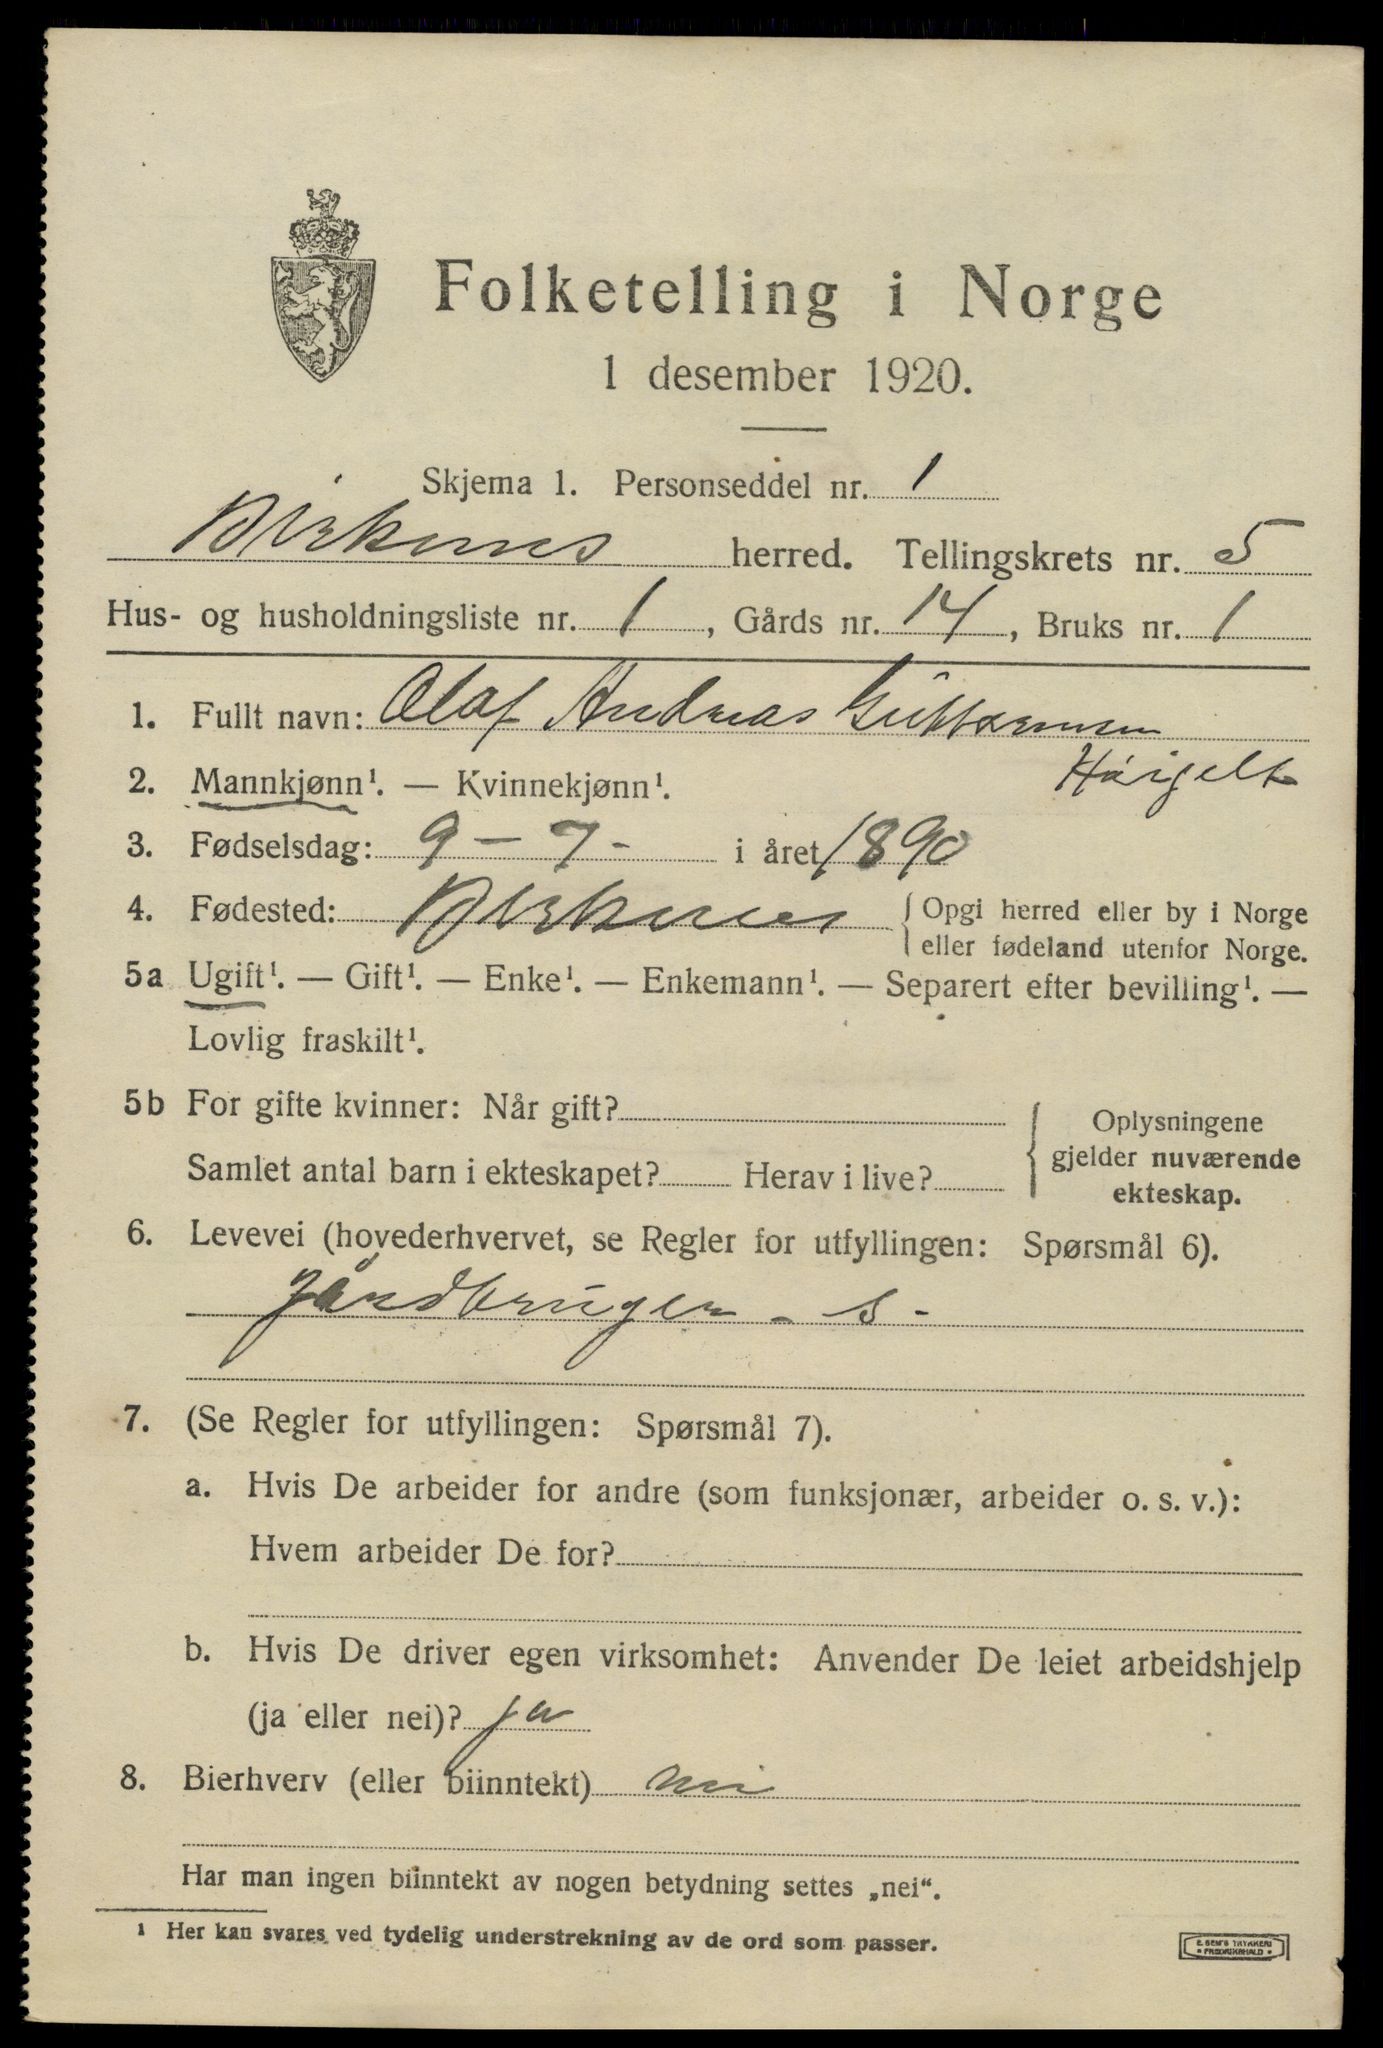 Folketelling i Norge
1 desember 1920.
Skjema 1. Personseddel nr. 1
Birkenes herred. Tellingskrets nr. 5
Hus- og husholdningsliste nr. 1, Gårds nr. 14, Bruks nr. 1
1. Fullt navn: Olaf Andreas
2. Mannkjønn¹. — Kvinnekjønn¹.
3. Fødselsdag: 9 – 7 - i året 1890
4. Fødested: Birkenes { Opgi herred eller by i Norge
eller fødeland utenfor Norge.
5a Ugift¹. — Gift¹. — Enke¹. — Enkemann¹. — Separert efter bevilling¹. —
Lovlig fraskilt¹.
5b For gifte kvinner: Når gift?
Samlet antal barn i ekteskapet? Herav i live?
{ Oplysningene
gjelder nuværende
ekteskap.
6. Levevei (hovederhvervet, se Regler for utfyllingen: Spørsmål 6).
Jårdbruger - s -
7. (Se Regler for utfyllingen: Spørsmål 7).
a. Hvis De arbeider for andre (som funksjonær, arbeider o. s. v.):
Hvem arbeider De for?
b. Hvis De driver egen virksomhet: Anvender De leiet arbeidshjelp
(ja eller nei)? ja
8. Bierhverv (eller biinntekt) nei
Har man ingen biinntekt av nogen betydning settes „nei“.
¹ Her kan svares ved tydelig understrekning av de ord som passer.
E. SEM'S TRYKKERI
• FREDRIKSHALD •